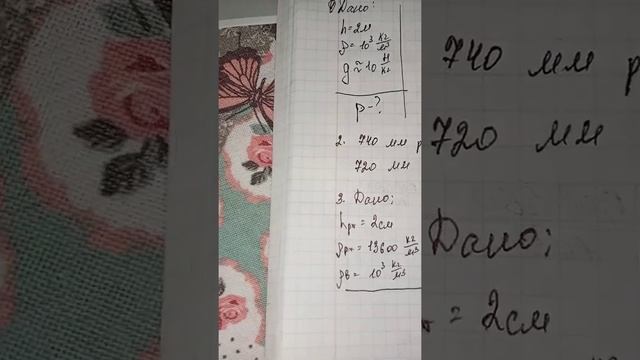 Дано:
h = 2м
ρ = 10³ кг/м³
g ≈ 10 Н/кг
p - ?
2. 740 мм р
720 мм
3. Дано:
hрт = 2см
ρрт = 13600 кг/м³
ρв = 10³ кг/м³
740 мм р
720 мм
Дано:
= 2см